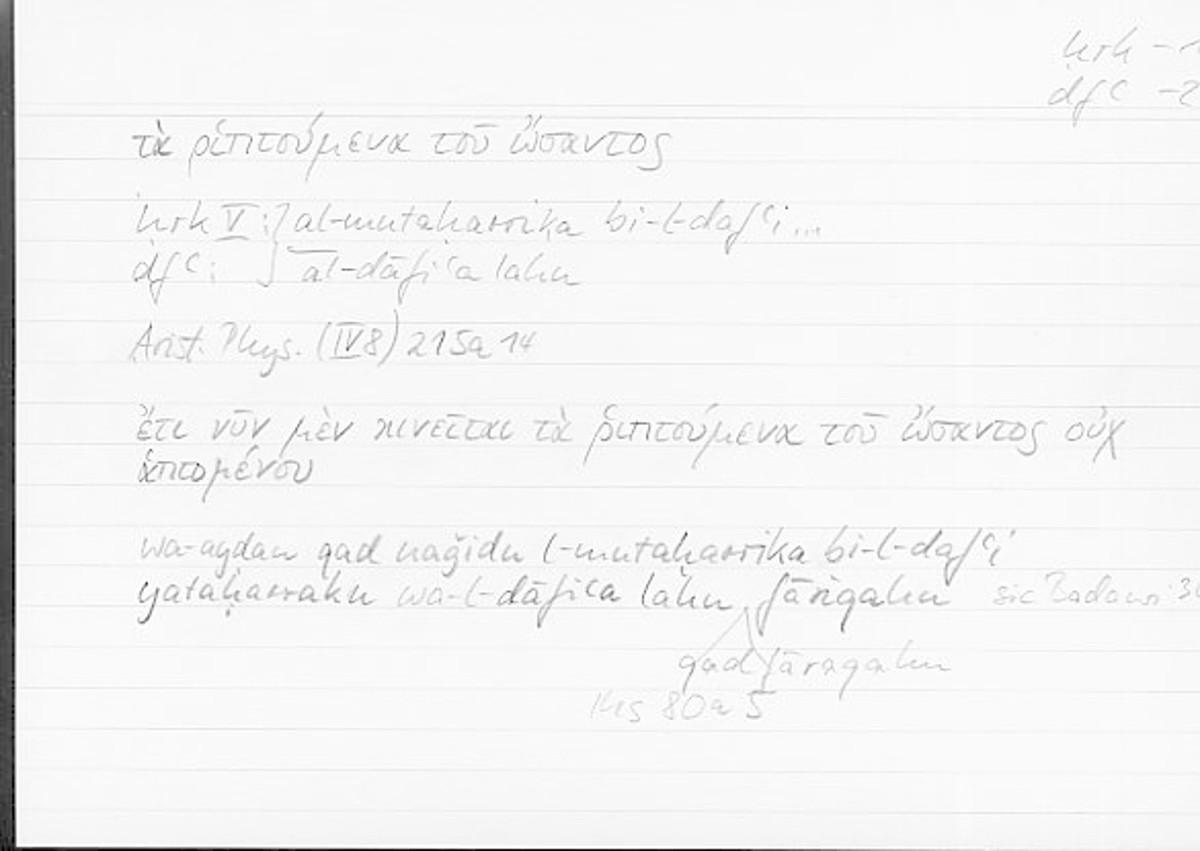 ḥrk – 1
dfʿ – 2
τὰ ῥιπτούμενα τοῦ ὤσαντος
ḥrk V : } al-mutaḥarrika bi-l-dafʿi ...
dfʿ : } al-dāfiʿa lahu
Arist. Phys. (IV 8) 215a 14
ἔτι νῦν μὲν κινεῖται τὰ ῥιπτούμενα τοῦ ὤσαντος οὐχ
ἁπτομένου
wa-ayḍan qad naǧidu l-mutaḥarrika bi-l-dafʿi
yataḥarraku wa-l-dāfiʿa lahu fāriqahu sic Badawi
qad fāraqahu
Hs 80a 5